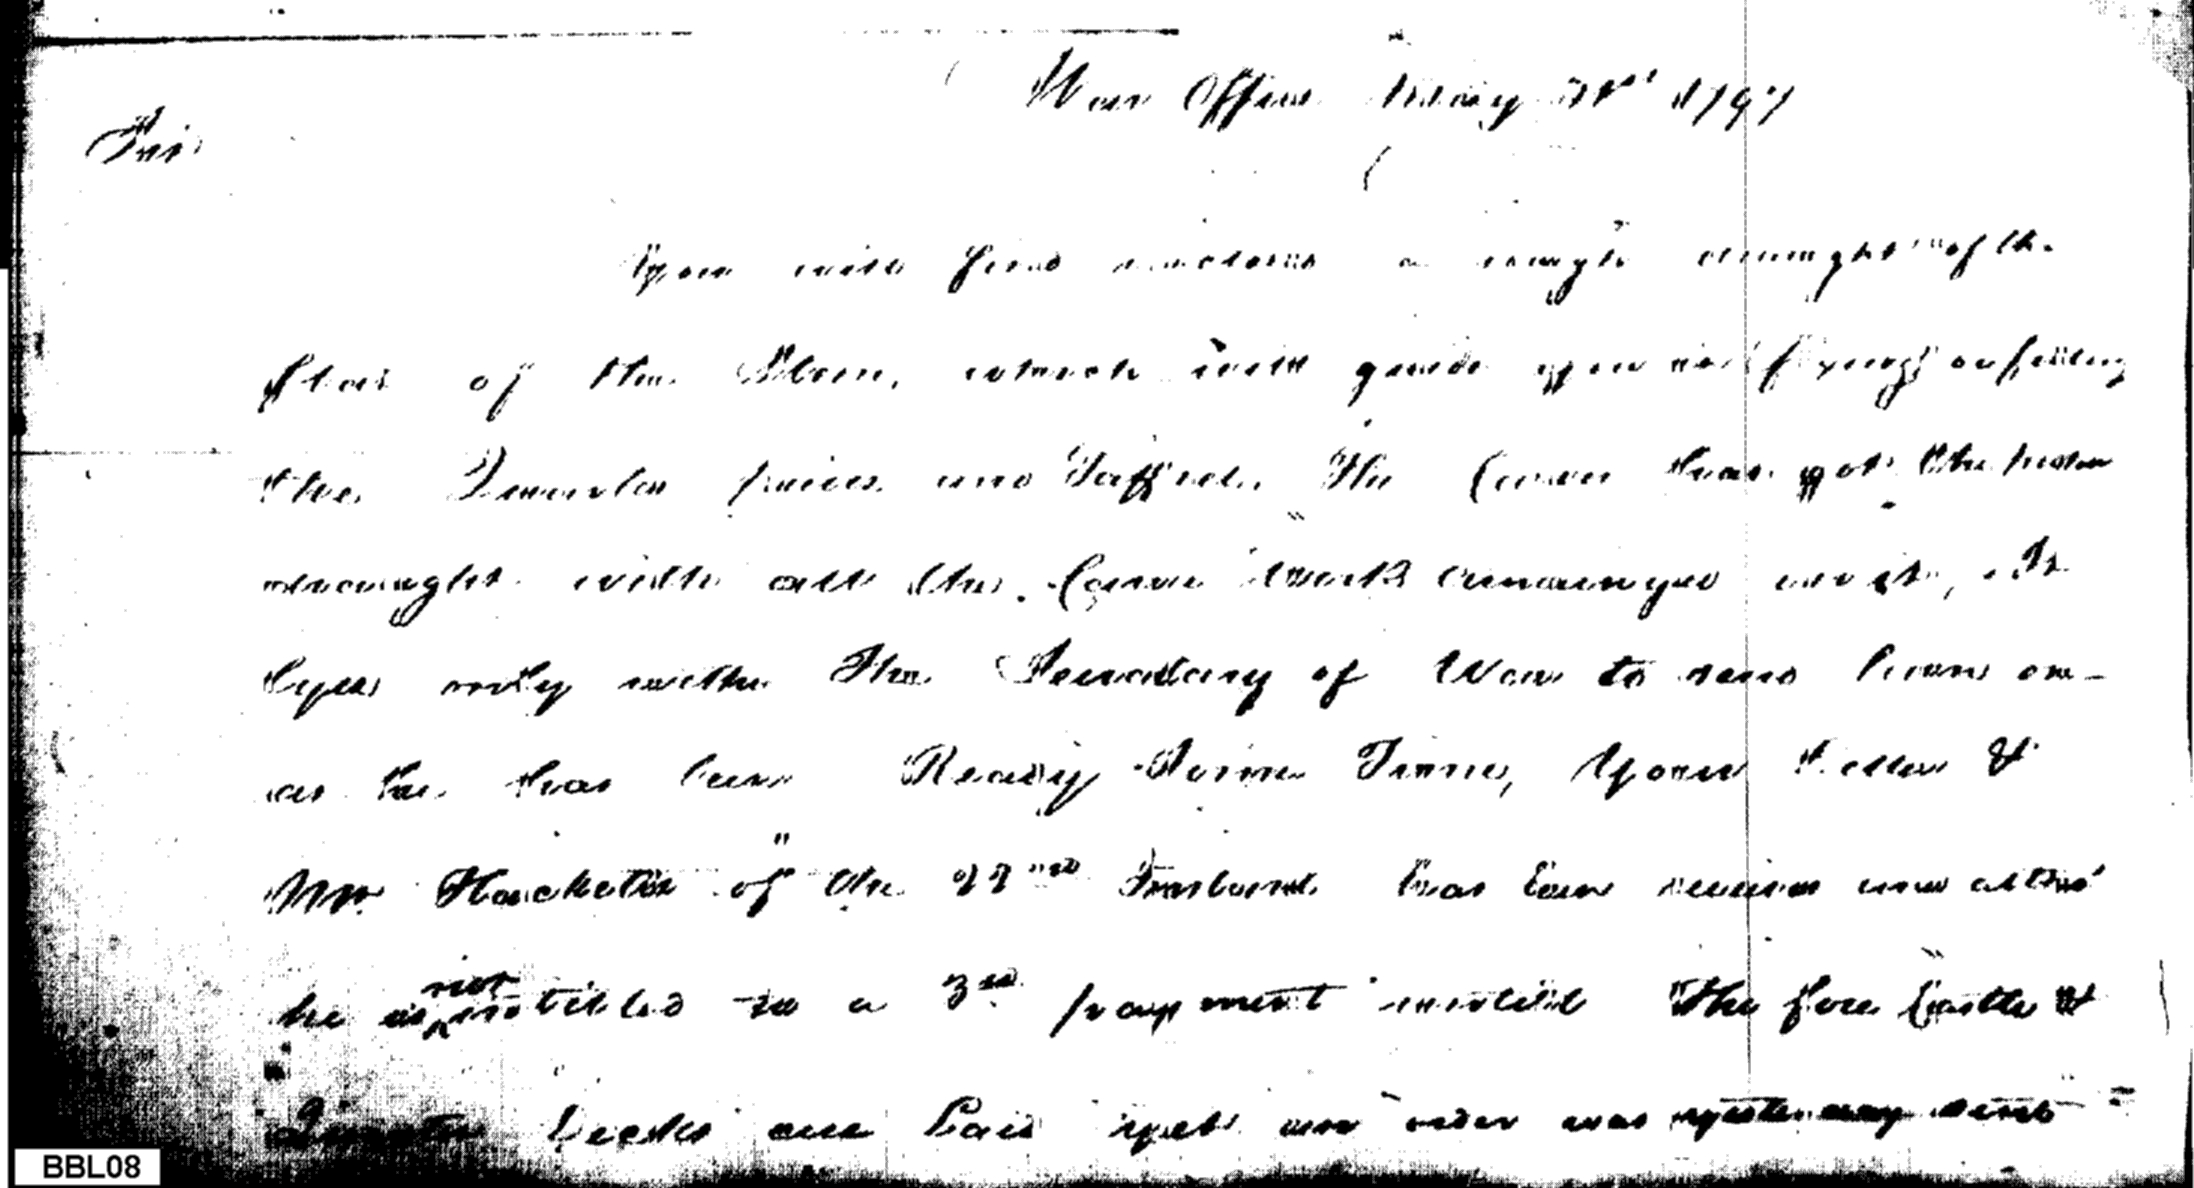 War Office May 31st 1797
Sir
You will find inclosed a rough draught of the
flat of the Stern, which will guide you in fixing
the Quarter pieces and Taffrel. The Carver has got the
draught with all the Carve Work arranged on it, It
lyes only with The Secretary of War to send him on
as he has been Ready Some Time, Your Letter &
Mr Hacketts of the 22nd Instant has been received and altho
he is not intitled to a 3rd payment untill The fore Castle &
Quarter Decks are Laid yet an order was yesterday sent
BBL08